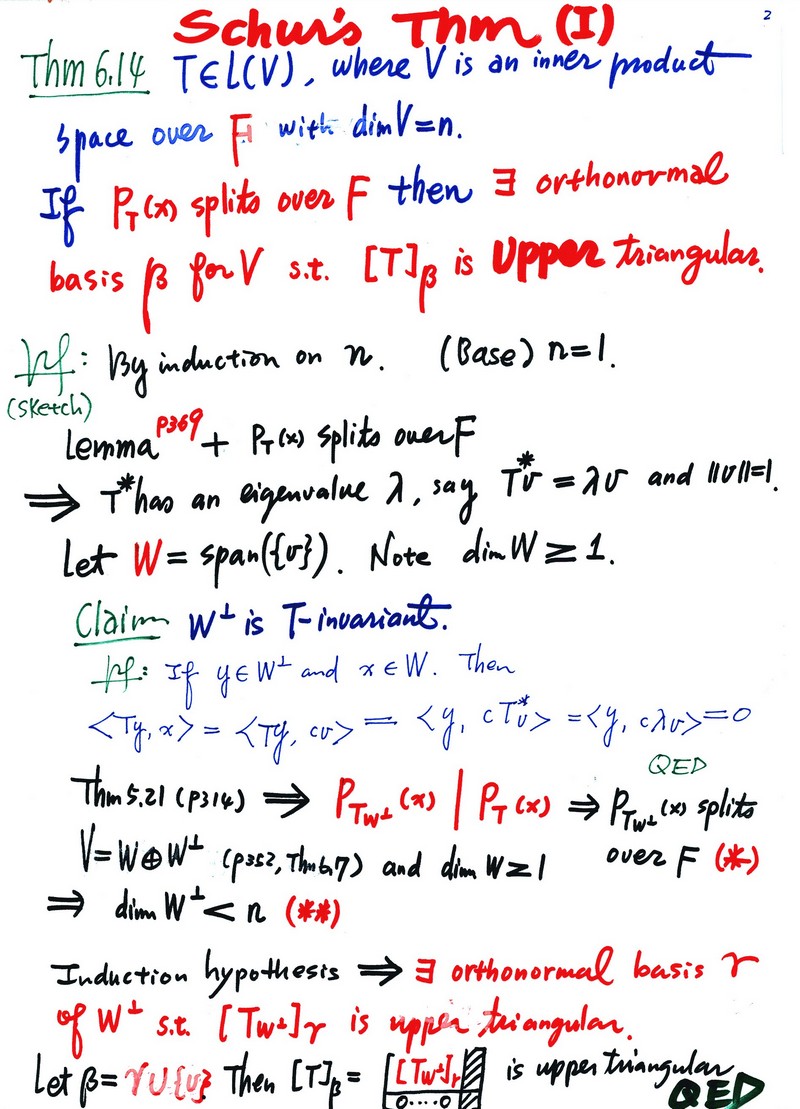 2
Schur's Thm (I)
Thm 6.14 T∈L(V), where V is an inner product
space over F with dim V=n.
If P_T(x) splits over F then ∃ orthonormal
basis β for V s.t. [T]_β is Upper triangular.
pf: By induction on n. (Base) n=1.
(Sketch)
Lemma^{P369} + P_T(x) splits over F
⟹ T* has an eigenvalue λ, say T*v = λv and ||v||=1.
Let W = span({v}). Note dim W ≥ 1.
Claim W^⊥ is T-invariant.
pf: If y∈W^⊥ and x∈W. Then
<Ty, x> = <Ty, cv> = <y, cT*v> = <y, cλv> = 0
QED
Thm 5.21 (P314) ⟹ P_{T_{W^⊥}}(x) | P_T(x) ⟹ P_{T_{W^⊥}}(x) splits
V=W⊕W^⊥ (p352, Thm 6.7) and dim W≥1 over F (*)
⟹ dim W^⊥ < n (**)
Induction hypothesis ⟹ ∃ orthonormal basis γ
of W^⊥ s.t. [T_{W^⊥}]_γ is upper triangular.
Let β = γ∪{v} Then [T]_β = [[T_{W^⊥}]_γ is upper triangular
0....0
QED